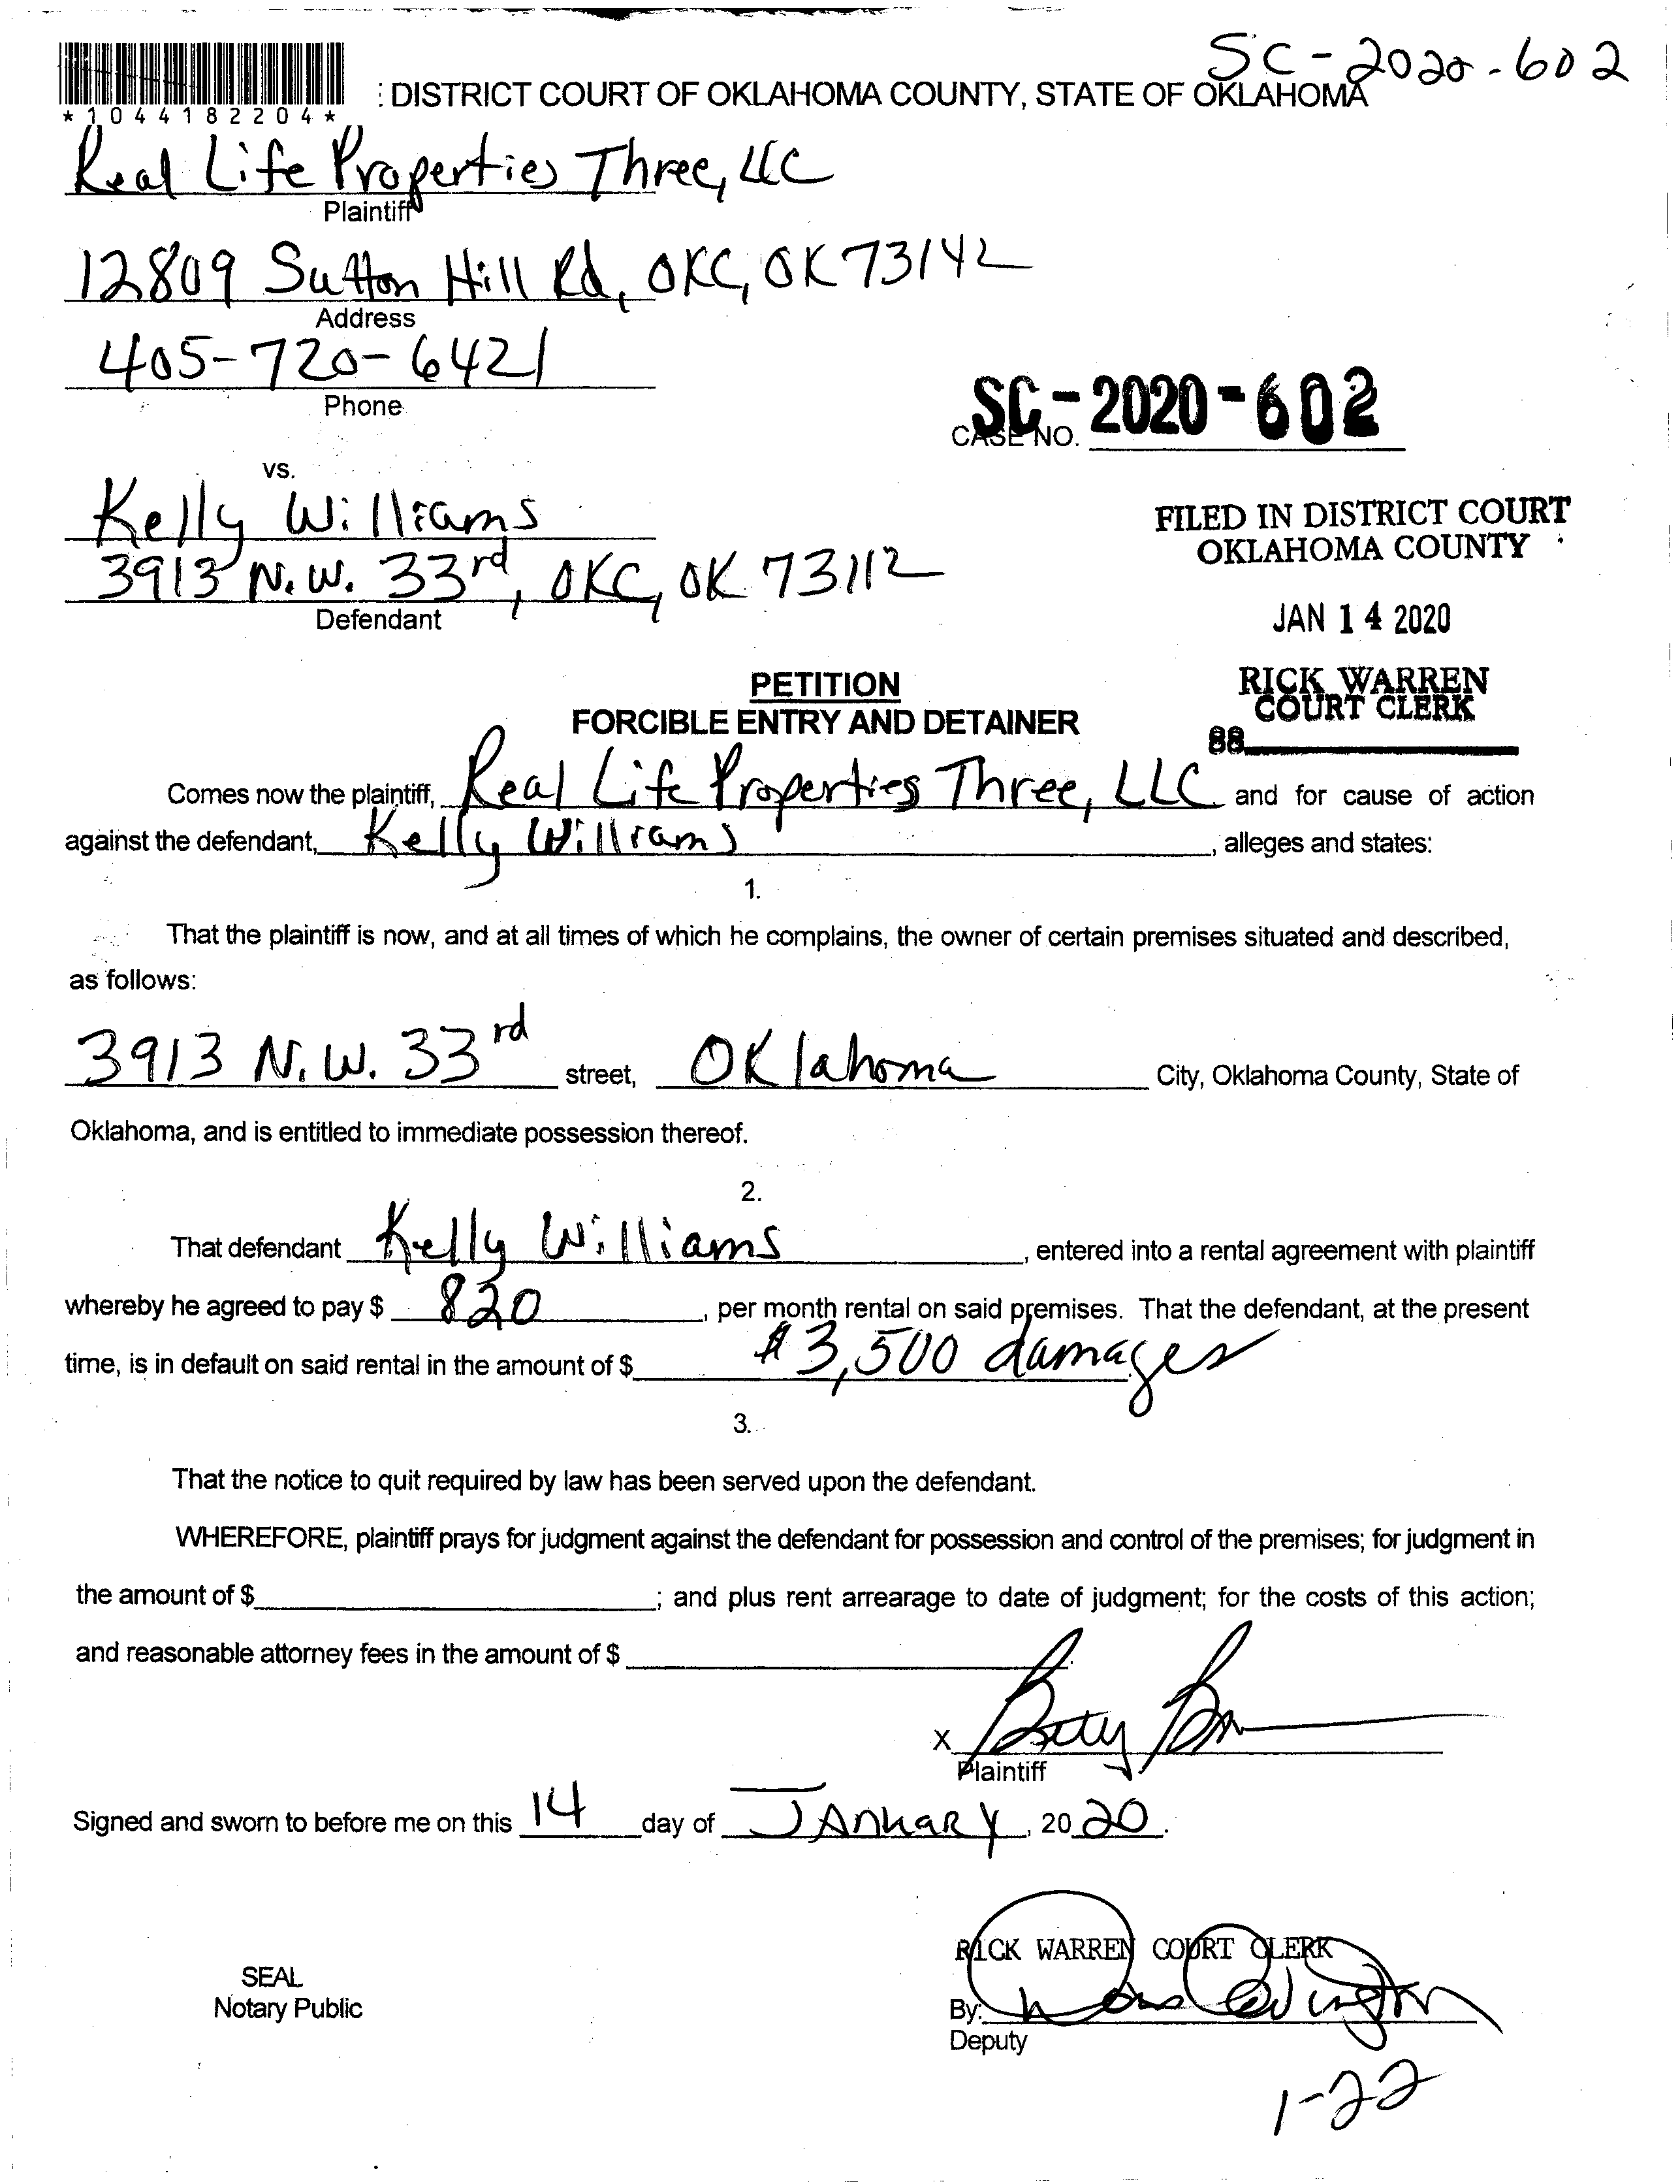 SC-2020-602
: DISTRICT COURT OF OKLAHOMA COUNTY, STATE OF OKLAHOMA
*1044182204*
Real Life Properties Three, LLC
Plaintiff
12809 Sutton Hill Rd, OKC, OK 73142
Address
405-720-6421
Phone
SC-2020-602
CASE NO.
vs.
Kelly Williams
3913 N.W. 33rd, OKC, OK 73112
Defendant
FILED IN DISTRICT COURT
OKLAHOMA COUNTY
JAN 14 2020
RICK WARREN
COURT CLERK
88
PETITION
FORCIBLE ENTRY AND DETAINER
Comes now the plaintiff, Real Life Properties Three, LLC and for cause of action
against the defendant, Kelly Williams, alleges and states:
1.
That the plaintiff is now, and at all times of which he complains, the owner of certain premises situated and described,
as follows:
3913 N.W. 33rd street, Oklahoma City, Oklahoma County, State of
Oklahoma, and is entitled to immediate possession thereof.
2.
That defendant Kelly Williams, entered into a rental agreement with plaintiff
whereby he agreed to pay $ 820, per month rental on said premises. That the defendant, at the present
time, is in default on said rental in the amount of $ $3,500 damages
3.
That the notice to quit required by law has been served upon the defendant.
WHEREFORE, plaintiff prays for judgment against the defendant for possession and control of the premises; for judgment in
the amount of $ ; and plus rent arrearage to date of judgment; for the costs of this action;
and reasonable attorney fees in the amount of $ .
X Betty
Plaintiff
Signed and sworn to before me on this 14 day of JANUARY, 20 20.
RICK WARREN COURT CLERK
SEAL
Notary Public
By:
Deputy
1-22